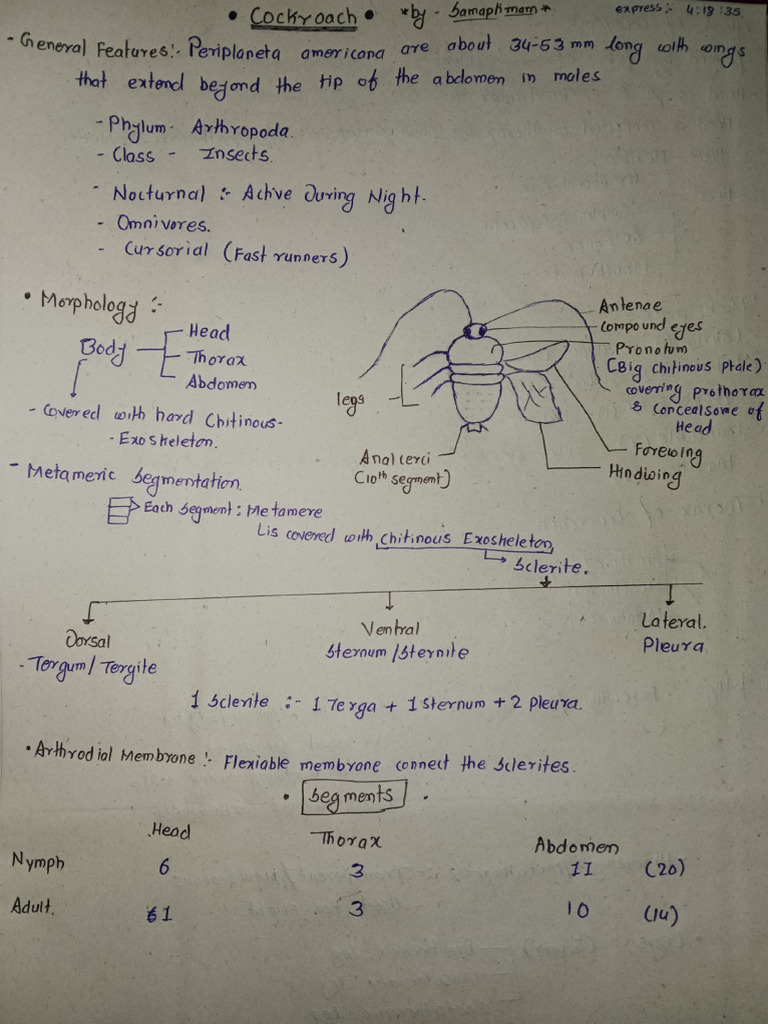 • Cockroach • *by - Samapti mam* express:- 4:18:35
- General Features:- Periplaneta americana are about 34-53 mm long with wings
that extend beyond the tip of the abdomen in males
- Phylum- Arthropoda.
- Class - Insects.
- Nocturnal :- Active During Night.
- Omnivores.
- Cursorial (Fast runners)
• Morphology :-
Body
Head
Thorax
Abdomen
- Covered with hard Chitinous-
- Exoskeleton.
Antenae
Compound eyes
Pronotum
(Big chitinous Ptale)
covering prothorax
& Conceal some of
Head
legs
Anal cerci
(10th segment)
Forewing
Hindwing
- Metameric Segmentation.
Each Segment: Metamere
is covered with Chitinous Exoskeleton
Sclerite.
Dorsal
- Torgum/Tergite
Ventral
Sternum/Sternite
Lateral.
Pleura
1 Sclerite :- 1 Terga + 1 Sternum + 2 Pleura.
• Arthrodial Membrane:- Flexiable membrane connect the Sclerites.
• Segments .
Head Thorax Abdomen
Nymph 6 3 11 (20)
Adult. 1 3 10 (14)